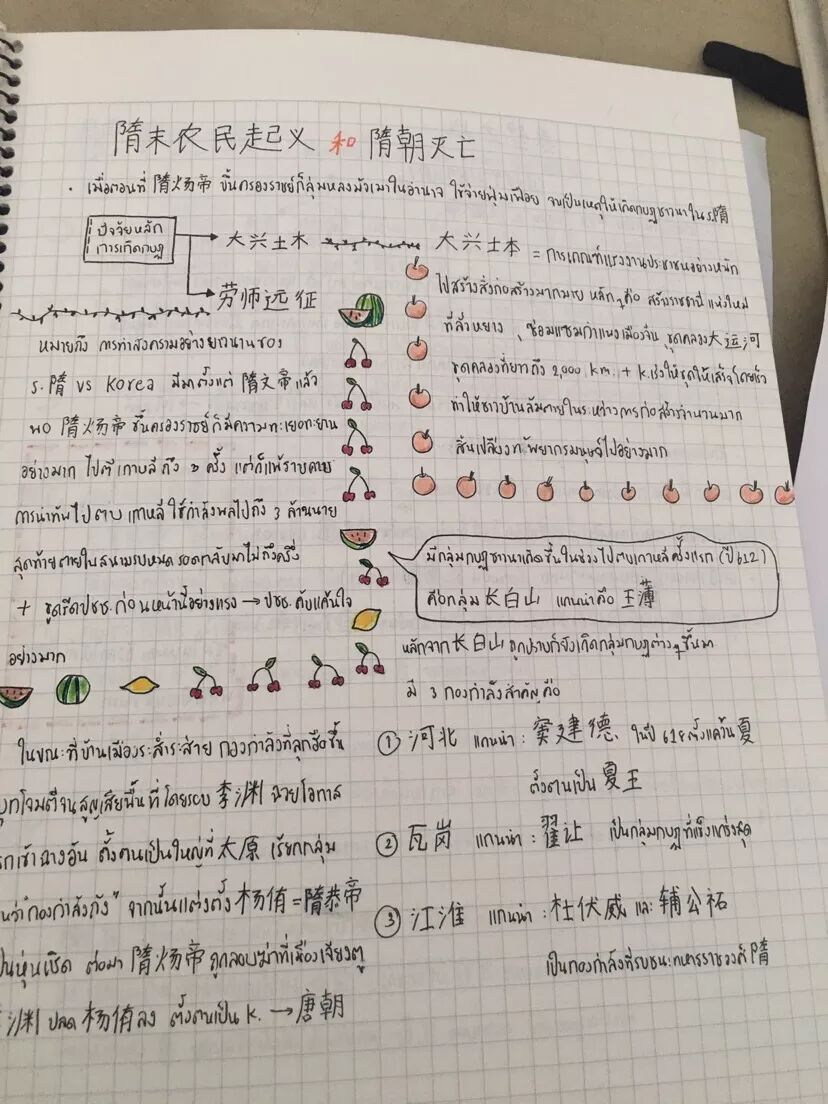 隋末农民起义 和 隋朝灭亡
· เมื่อตอนที่ 隋炀帝 ขึ้นครองราชย์ก็ลุ่มหลงมัวเมาในอำนาจ ใช้จ่ายฟุ่มเฟือย จนเป็นเหตุให้เกิดกบฏชาวนาใน ร.隋
ปัจจัยหลัก
การเกิดกบฏ
大兴土木
劳师远征
大兴土本 = การเกณฑ์แรงงานประชาชนอย่างหนัก
ไปสร้างสิ่งก่อสร้างมากมาย หลักๆคือ สร้างราชธานี แห่งใหม่
ที่ลั่วหยาง , ซ่อมแซมกำแพงเมืองจีน ขุดคลอง大运河
ขุดคลองที่ยาวถึง 2,000 km. + K.เร่งให้ขุดให้เสร็จโดยเร็ว
ทำให้ชาวบ้านล้มตายในระหว่างการก่อสร้างจำนวนมาก
สิ้นเปลืองทรัพยากรมนุษย์ไปอย่างมาก
หมายถึง การทำสงครามอย่างยาวนานของ
ร.隋 vs Korea มีมาตั้งแต่ 隋文帝 แล้ว
พอ 隋炀帝 ขึ้นครองราชย์ก็มีความทะเยอทะยาน
อย่างมาก ไปตีเกาหลีถึง 3 ครั้ง แต่ก็แพ้ราบคาบ
การนำทัพไปตบเกาหลี ใช้กำลังพลไปถึง 3 ล้านนาย
สุดท้ายตายในสนามรบหมด รอดกลับมาไม่ถึงครึ่ง
+ ขูดรีดปชช. ก่อนหน้านี้อย่างแรง → ปชช. คับแค้นใจ
อย่างมาก
มีกลุ่มกบฏชาวนาเกิดขึ้นในช่วงไปตบเกาหลีครั้งแรก (ปี 612)
คือกลุ่ม 长白山 แกนนำคือ 王薄
หลังจาก 长白山 ถูกปราบก็ยังเกิดกลุ่มกบฏต่างๆขึ้นมา
มี 3 กองกำลังสำคัญ คือ
① 河北 แกนนำ : 窦建德 ในปี 618 ตั้งแคว้น 夏
ตั้งตนเป็น 夏王
② 瓦岗 แกนนำ : 翟让 เป็นกลุ่มกบฏที่แข็งแกร่งสุด
③ 江淮 แกนนำ : 杜伏威 และ 辅公祏
เป็นกองกำลังที่รบชนะทหารราชวงศ์ 隋
ในขณะที่บ้านเมืองระส่ำระส่าย กองกำลังที่ลุกฮือขึ้น
บุกโจมตีจนสูญเสียพื้นที่โดยรอบ 李渊 ฉวยโอกาส
เข้าฉางอัน ตั้งตนเป็นใหญ่ที่ 太原 เรียกกลุ่ม
ว่า "กองกำลังถัง" จากนั้นแต่งตั้ง 杨侑 = 隋恭帝
เป็นหุ่นเชิด ต่อมา 隋炀帝 ถูกลอบฆ่าที่เมืองเจียงตู
渊 ปลด 杨侑 ลง ตั้งตนเป็น K. → 唐朝